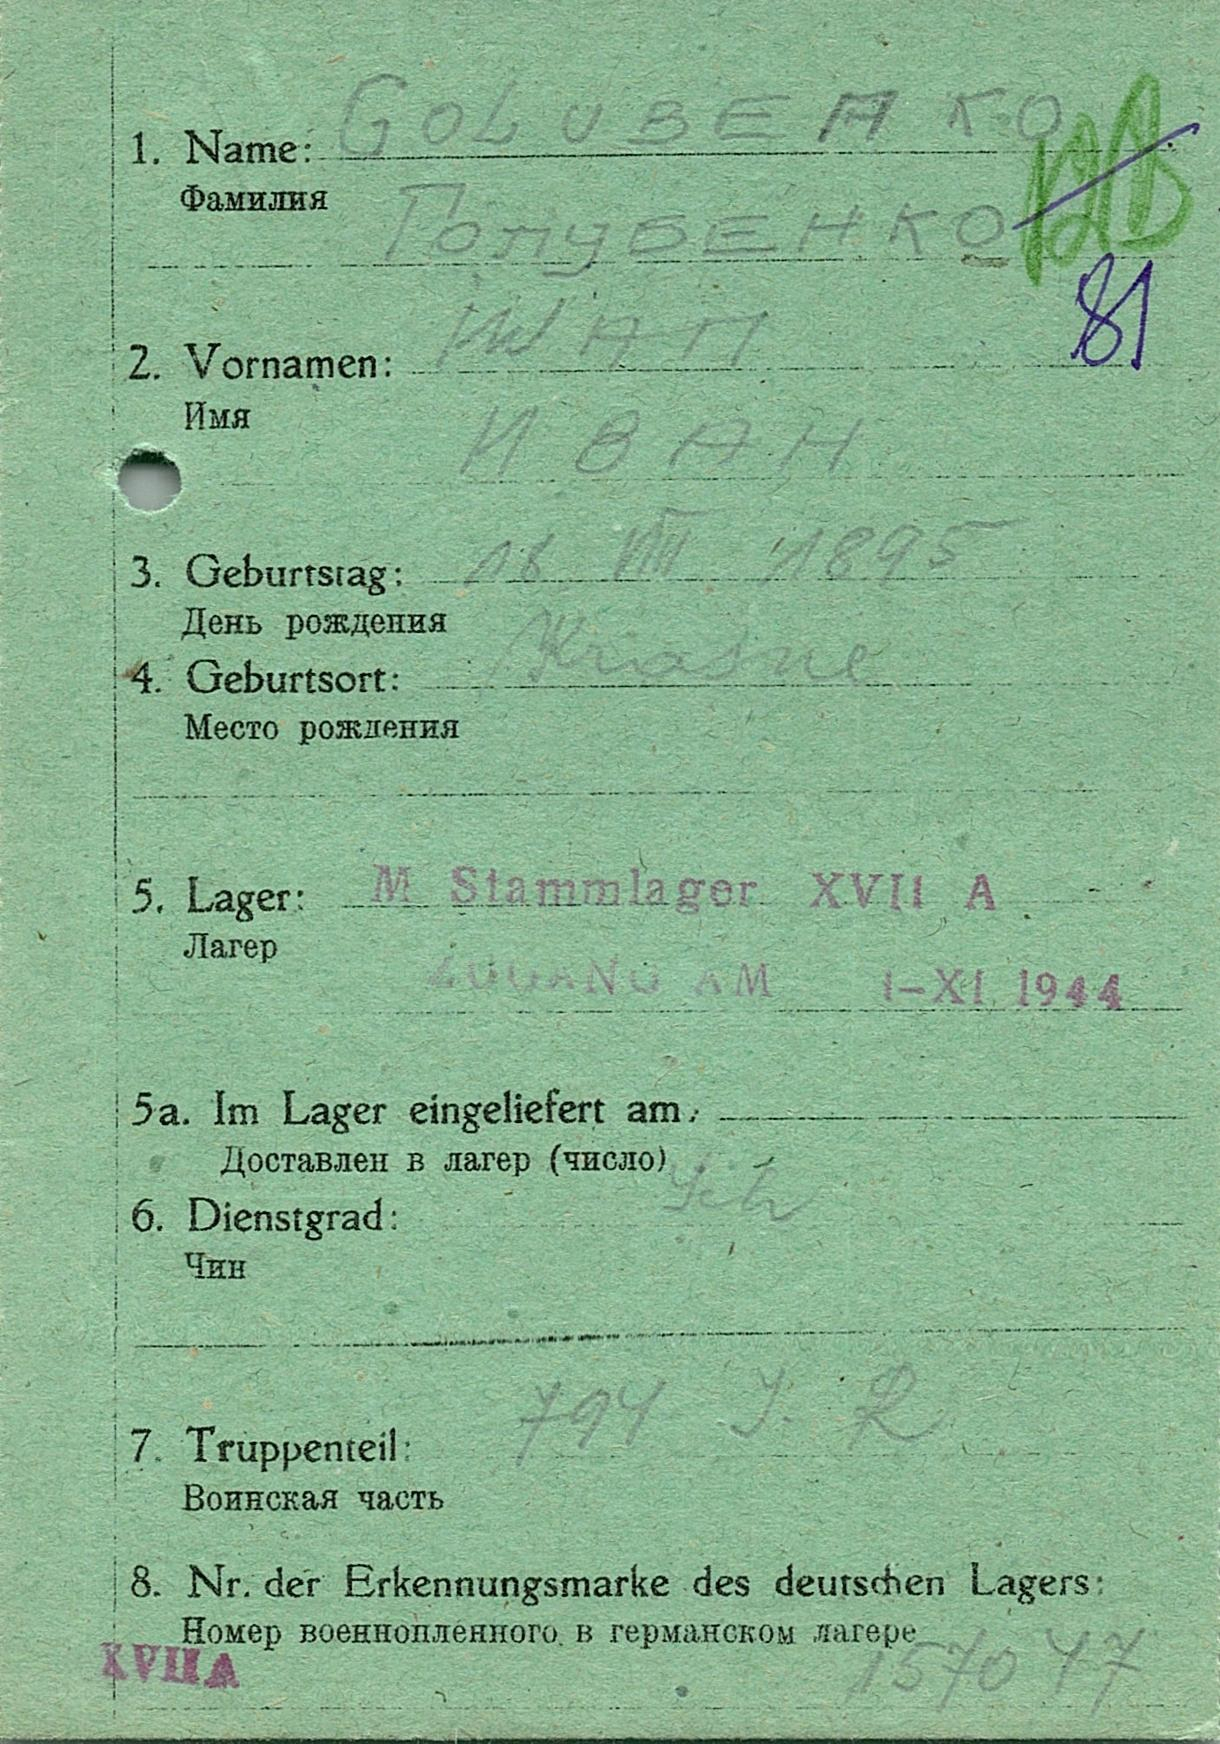 1. Name: GOLUBEПKO
Фамилия
ГОЛУБЕНКО
81
2. Vornamen: IWAП
Имя
ИВАН
3. Geburtstag: 16 VIII 1895
День рождения
4. Geburtsort: Krasne
Место рождения
5. Lager: M Stammlager XVII A
Лагер
ZUGANG AM 1-XI 1944
5a. Im Lager eingeliefert am:
Доставлен в лагер (число)
6. Dienstgrad:
Чин
7. Truppenteil: 794 J. R
Воинская часть
8. Nr. der Erkennungsmarke des deutschen Lagers:
Номер военнопленного в германском лагере
XVIIA 157047